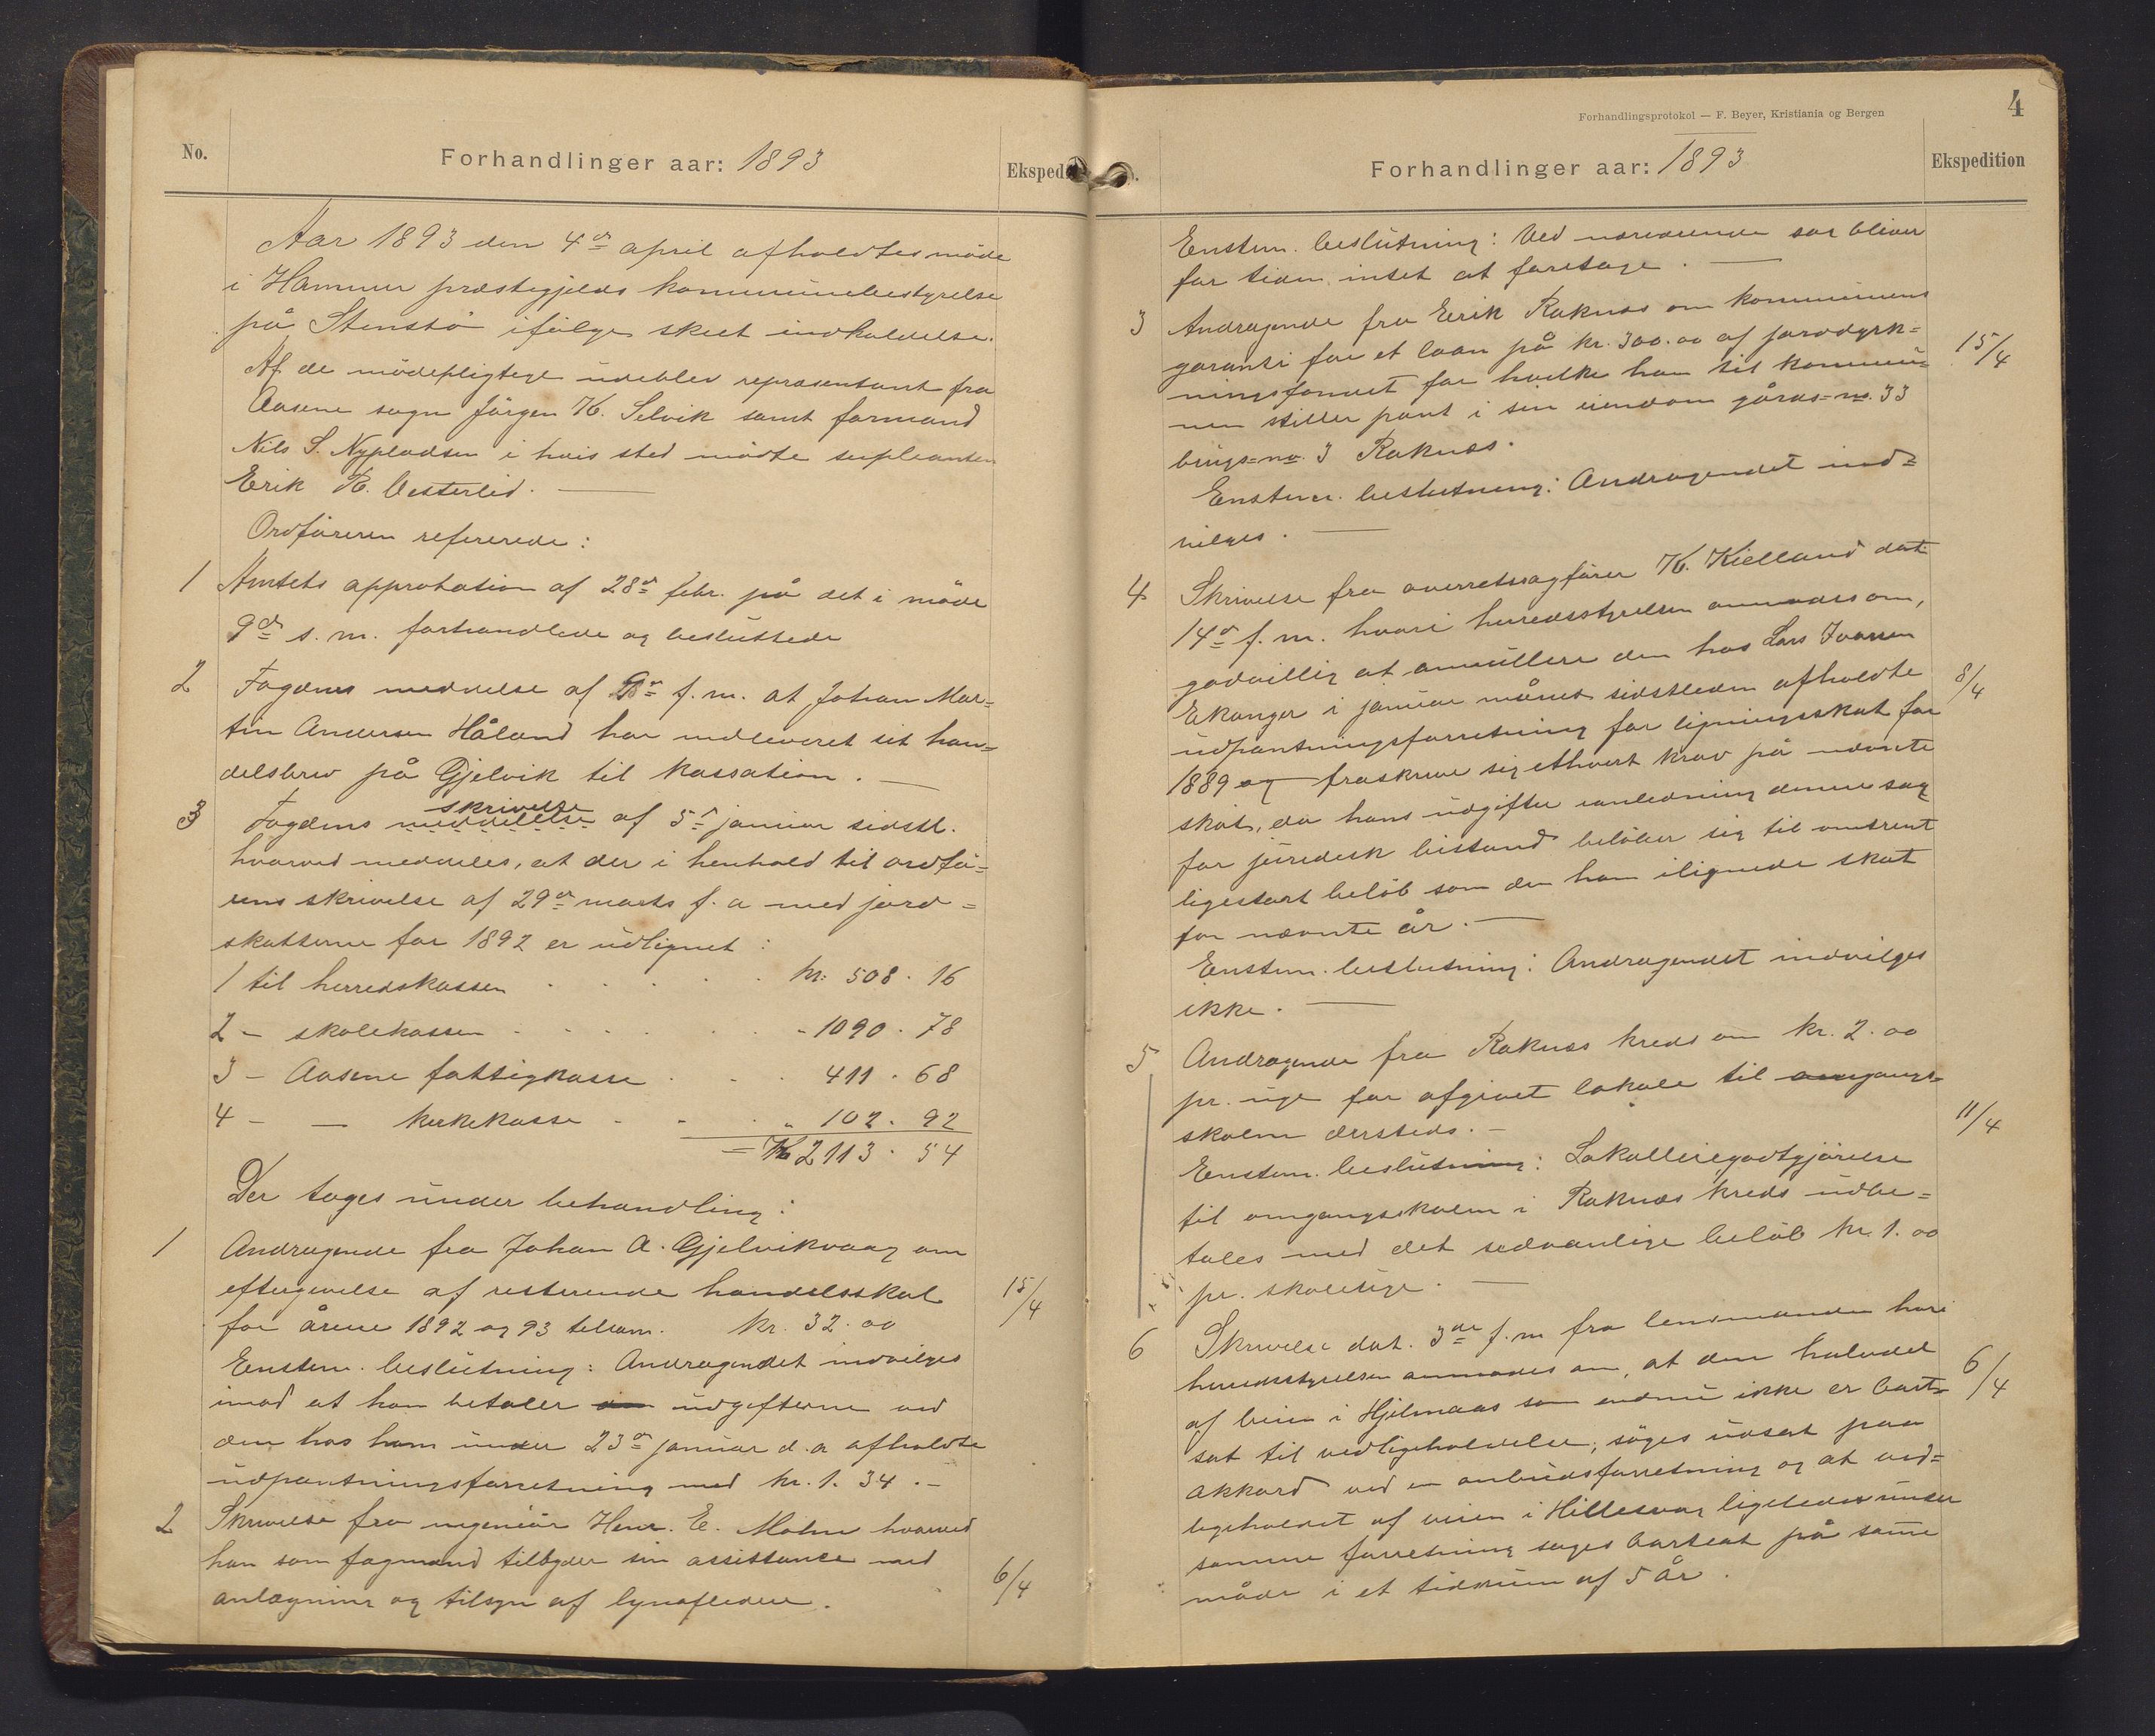 No.
Forhandlinger aar: 1893
Eksped
Aar 1893 den 4de april afholdtes møde
i Hammer præstegjelds kommunebestyrelse
på Stenstø ifølge skeet indkaldelse.
Af de mødepligtige udeblev repræsentant fra
Aasene sogn Jörgen K. Selvik samt formand
Nils S. Nypladsen i hvis sted mödte supleanten
Erik R. Vesterlid. —
Ordføreren refererede:
1 Amtets approbation af 28de febr. på det i møde
9de s. m. forhandlede og besluttede
2 Fogdens meddelse af f. m. at Johan Mar=
tin Andersen Håland har indleveret sit han=
delsbrev på Gjelvik til kassation. —
skrivelse
3 Fogdens meddelelse af 5te januar sidstl.
hvorved meddeles, at der i henhold til ordfø=
rens skrivelse af 29de marts f. a med jord=
skatterne for 1892 er udlignet:
1 til herredskassen . . . . . kr. 508. 16
2 - skolekassen . . . . . - 1090. 78
3 - Aasene fattigkasse . . . 411. 68
4 - — kirkekasse . . . " 102. 92
= Kr 2113. 54
Der toges under behandling:
1 Andragende fra Johan A. Gjelvikvaag om
eftergivelse af resterende handelsskat
for årene 1892 og 93 tilsam. kr. 32.00
15/4
Enstem. beslutning: Andragendet indvilges
imod at han betaler udgifterne ved
den hos ham under 23de januar d. a afholdte
udpantningsforretning med kr. 1. 34. -
2 Skrivelse fra ingeniør Henr. E. Mohn hvorved
han som fagmand tilbyder sin assistance med
anlægning og tilsyn af lynafledere.
6/4
Forhandlingsprotokol — F. Beyer, Kristiania og Bergen
4
Forhandlinger aar: 1893
Ekspedition
Enstem. beslutning: Ved nærværende sag bliver
for tiden intet at foretage. —
3 Andragende fra Eerik Raknes om kommunens
garanti for et laan på kr. 300.00 af jorddyrk=
ningsfondet for hvilke han til kommu=
nen stiller pant i sin eiendom gårds=no. 33
brugs=no. 3 Raknæs.
15/4
Enstem. beslutning: Andragendet ind=
vilges. —
4 Skrivelse fra overretssagfører K. Kielland dat.
14de f. m. hvori herredsstyrelsen anmodes om,
godvillig at annullere den hos Lars Ivarsen
Ekanger i januar måned sidstleden afholdte
udpantningsforretning for ligningsskat for
1889 og fraskrive sig ethvert krav på nævnte
skat, da hans udgifter i anledning denne sag
for juridisk bistand beløber sig til omtrent
ligestort beløb som den ham ilignede skat
for nævnte år. —
8/4
Enstem. beslutning: Andragendet indvilges
ikke. —
5 Andragende fra Raknæs kreds om kr. 2.00
pr. uge for afgivet lokale til omgangs=
skolen dersteds. -
11/4
Enstem. beslutning: Lokalleiegodtgjørelse
til omgangsskolen i Raknæs kreds udbe=
tales med det sedvanlige beløb kr. 1.00
pr. skoleuge. —
6 Skrivelse dat. 3de f. m fra lensmanden hvori
herredsstyrelsen anmodes om, at den halvdel
af veien i Hjelmaas som endnu ikke er bort=
sat til vedligeholdelse, søges udsat paa
akkord ved en anbudsforretning og at ved=
ligeholdet af veien i Hillesvaag ligeledes under
samme forretning søges bortsat på same
måde i et tidsrum af 5 år.
6/4